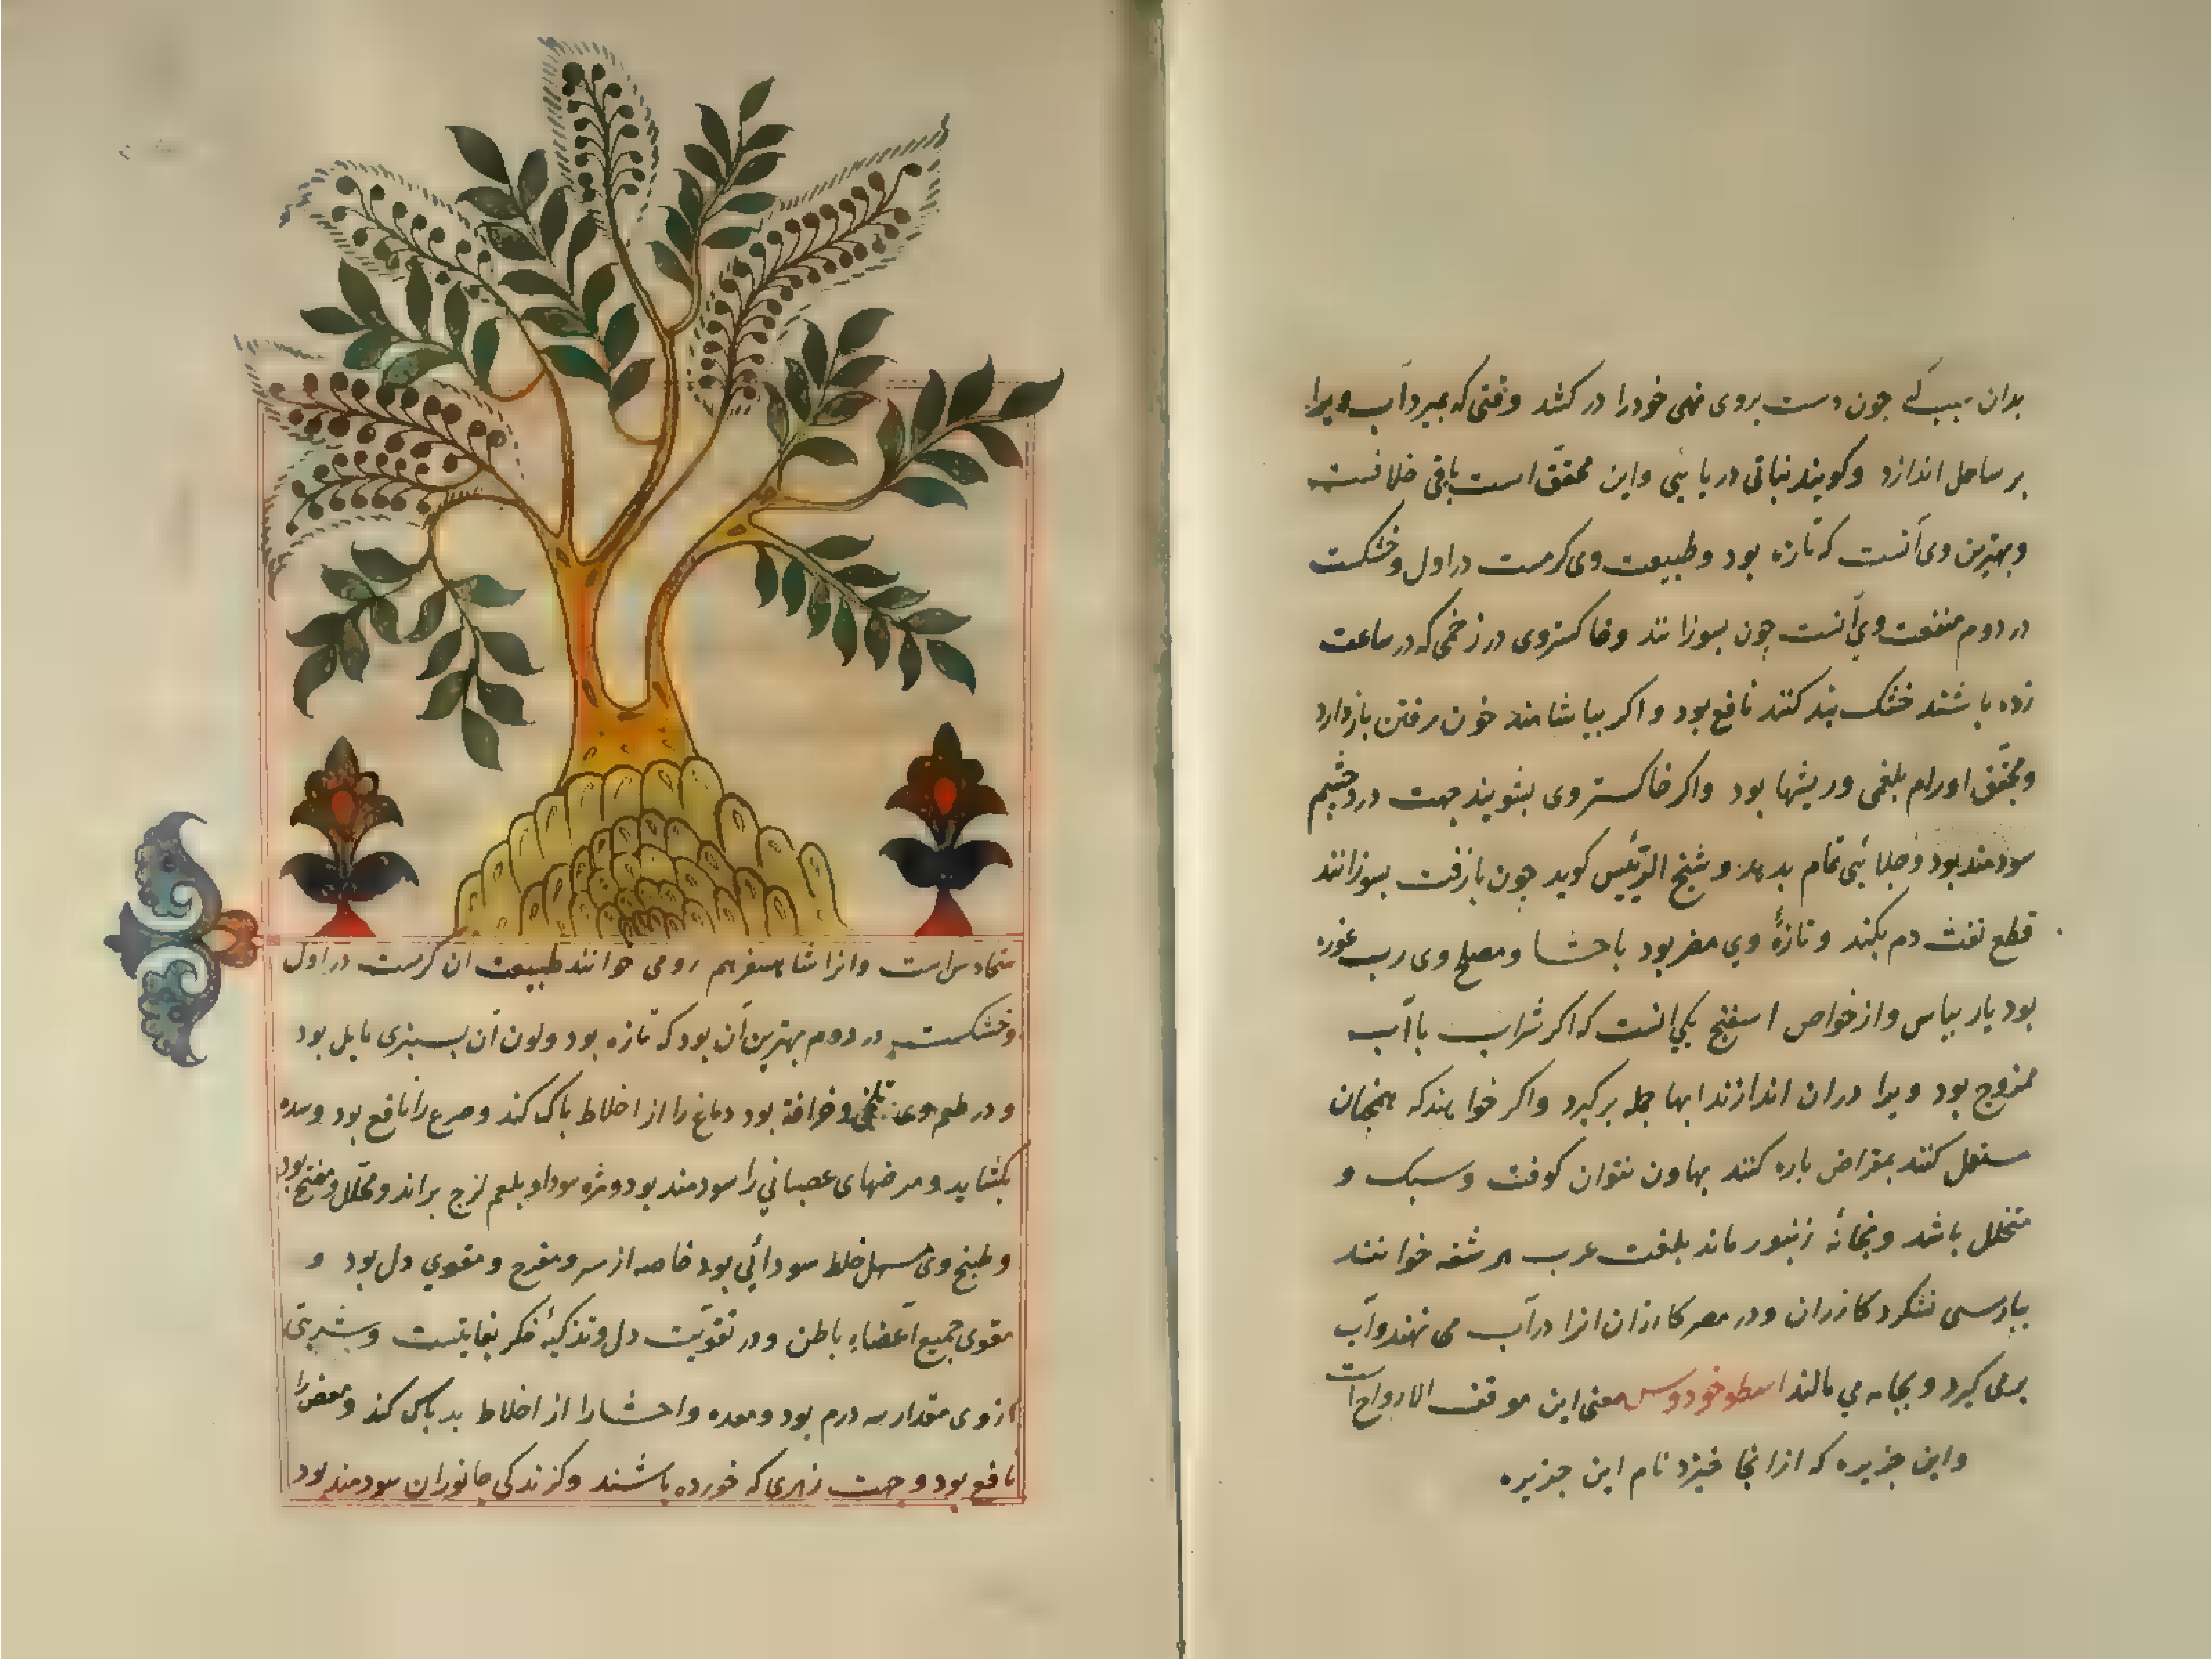 بدان سبب که جون دست بروی نهی خودرا در کشد وقتی که بمیرد آب ویرا
بر ساحل اندازد وکویند نباتی دریا ئیی واین محقّق است باقی خلا فست
وبهترین وی آنست که تازه بود وطبیعت وی کرمست در اول وخشکست
در دوم منفعت وی آنست چون بسوزانند وخاکستر وی در زخمی که در ساعت
زده باشند خشک بند کنند نافع بود واکر بیاشامند خون رفتن بازدارد
ومحقّق اورام بلغمی وریشها بود واکر خاکستر وی بشویند جهت درد چشم
سودمند بود وجلا ئیی تمام بدهد وشیخ الرئیس کوید چون بازفت بسوزانند
قطع نفث دم بکند وتازهٔ وی مضر بود باحشا ومصلح وی رب غوره
بود یار بباس واز خواص اسفنج یکی انست که اکر شراب باآب
ممزوج بود ویرا دران اندازند ابها جمله برکیرد واکر خواهند که همچنان
مستعمل کنند بمقراض باره کنند بهاون نتوان کوفت وسبک و
متخلل باشد وبخانهٔ زنبور ماند بلغت عرب هرشفه خوانند
ببارسی نشکرد کازران ودر مصر کازران انرا در آب می نهند وآب
برمی کیرد وبجامه می مالند اسطوخودوس معنی این موقف الارواح است
واین جزیره که از انجا خیزد نام این جزیره
ستخادس است وانرا شاهسفرهم رومی خوانند طبیعت ان کرمست در اول
وخشکست در دوم بهترین آن بود که تازه بود ولون آن بسبزی مایل بود
ودر طعم وی تلخی وخرافة بود دماغ را از اخلاط باک کند وصرع را نافع بود وسده
بکشاید ومرضهای عصبانی را سودمند بود ومژه سودا وبلغم لزج براند ومحلّل ومفتح بود
وطبخ وی مسهل خلط سودائی بود خاصه از سر ومفرح ومقوی دل بود و
مقوی جمیع اعضاء باطن ودر تقویت دل وتذکیهٔ فکر بغایتست وشربتی
ازوی مقدار سه درم بود ومعده واحشا را از اخلاط بد باک کند ومغص را
نافع بود وجهت زهری که خورده باشند وکزندکی جانوران سودمند بود